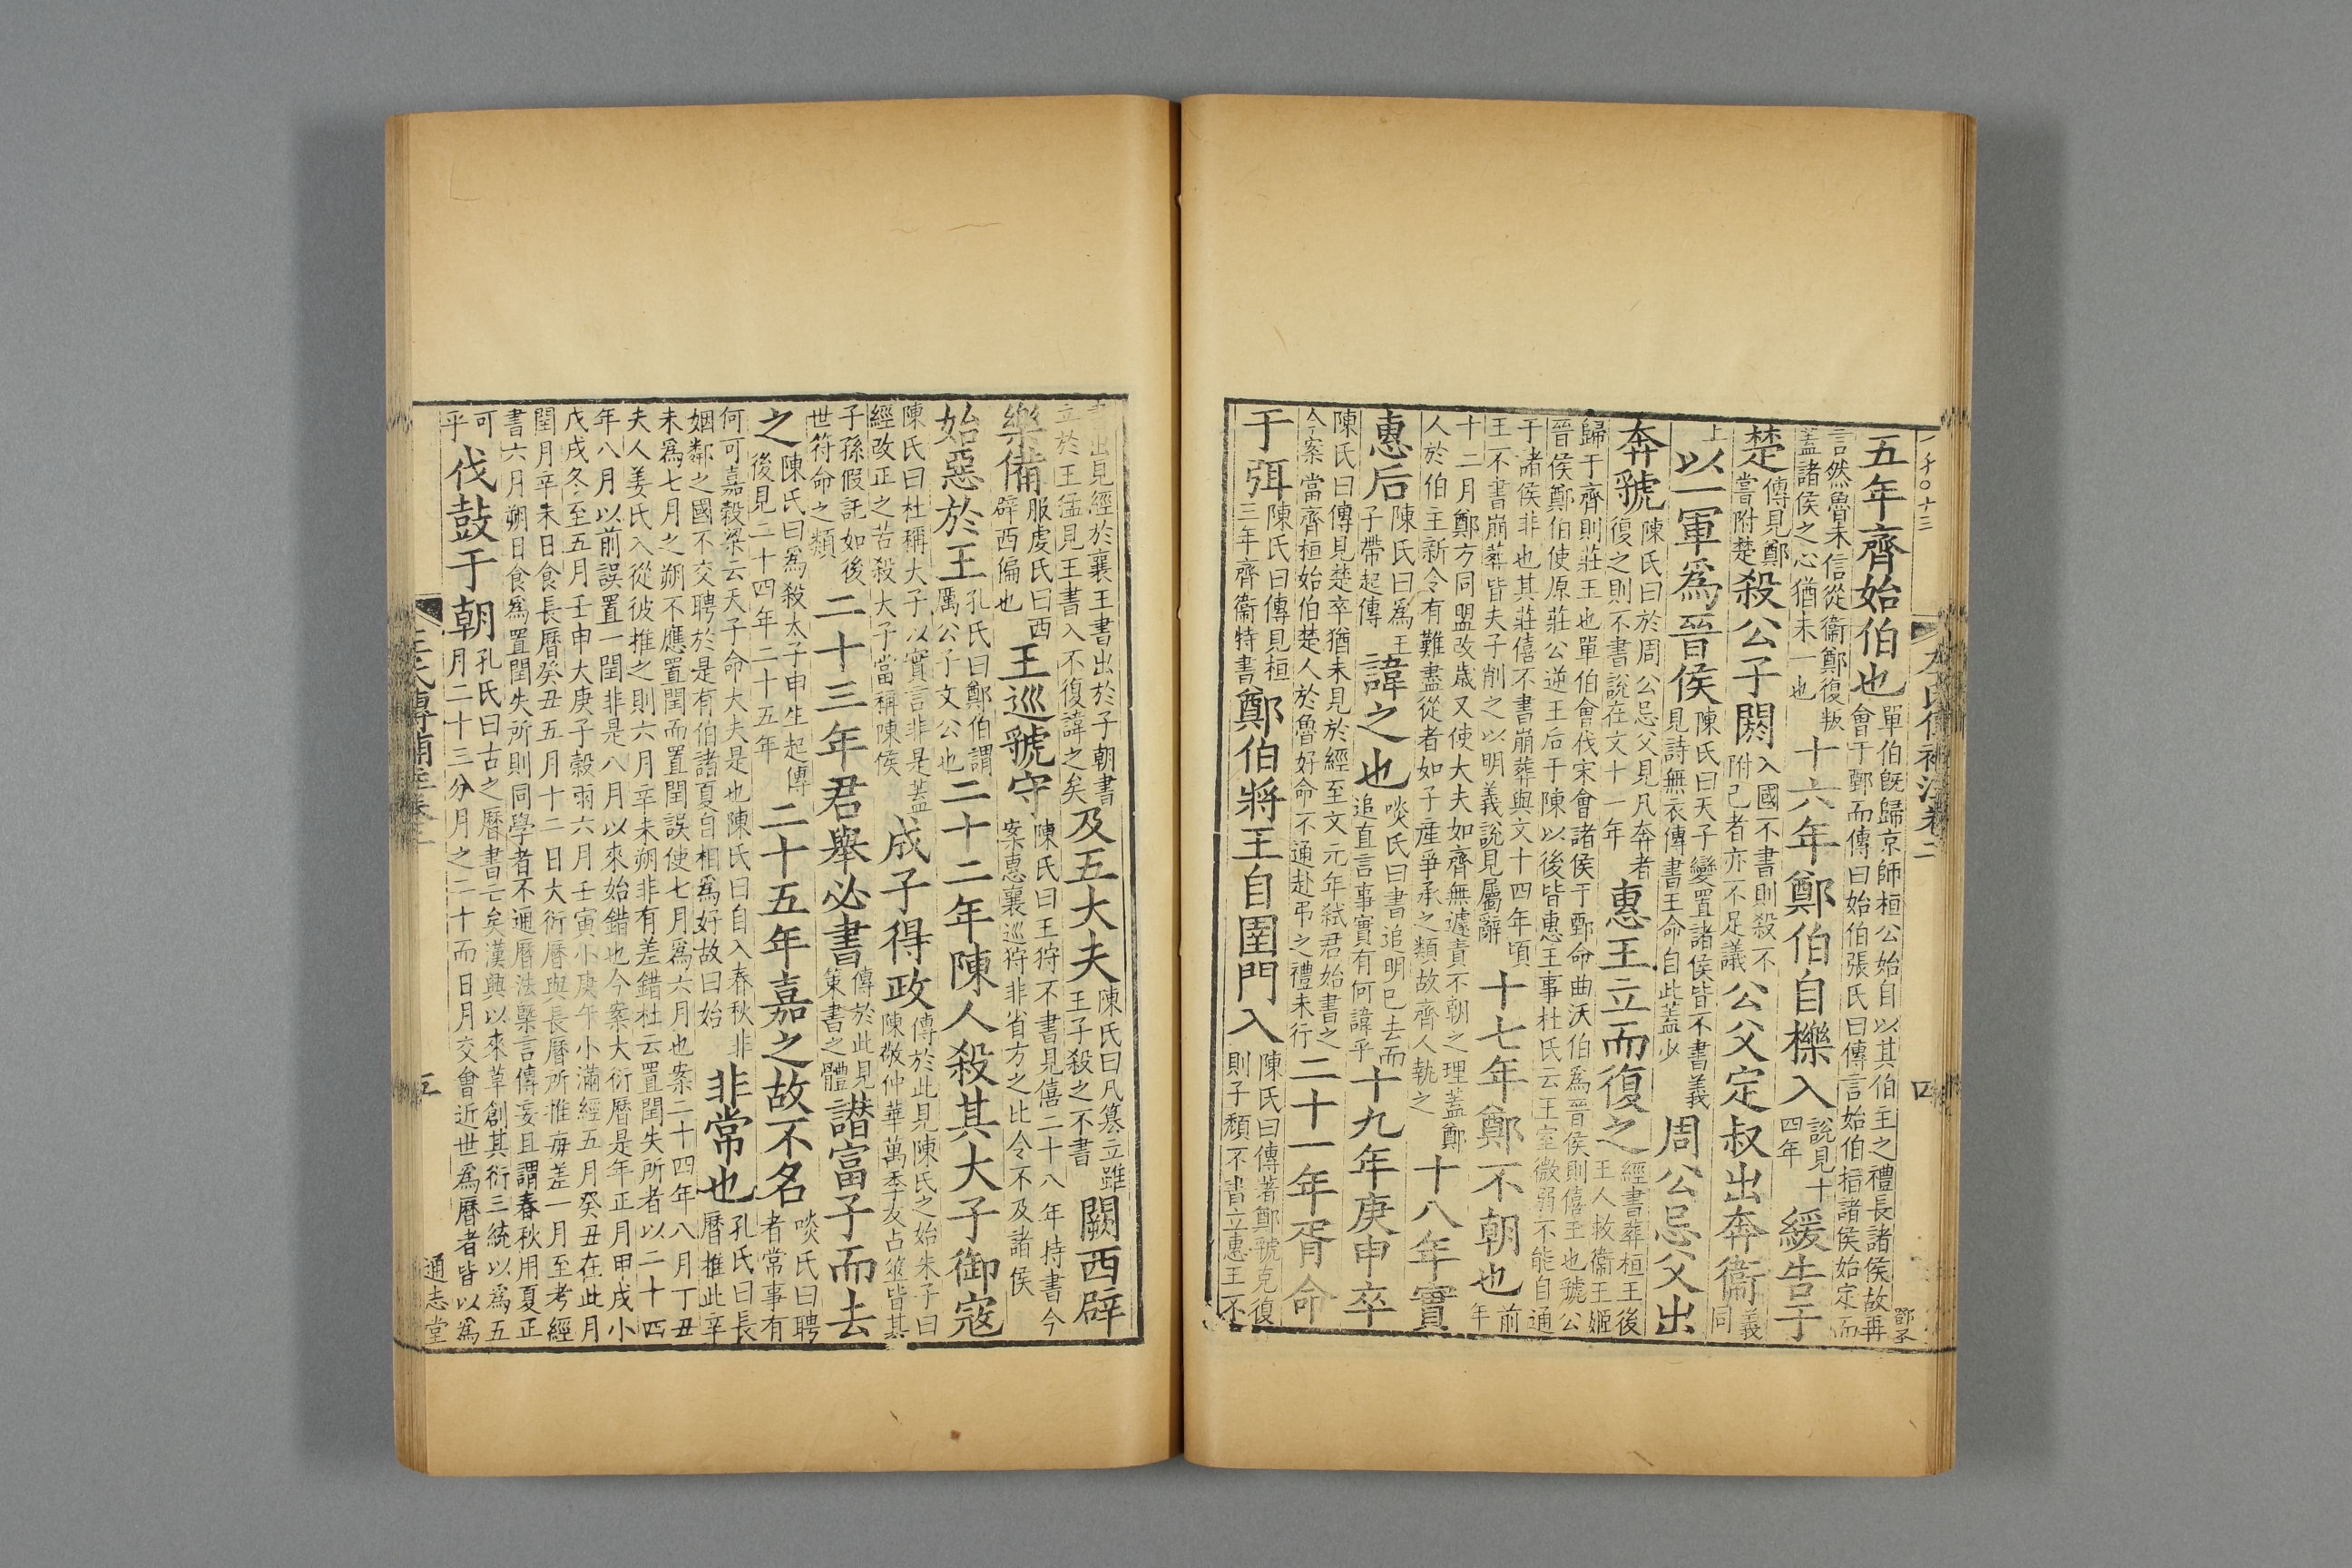 左氏傳補注卷二
四
五年齊始伯也單伯旣歸京師桓公始自以其伯主之禮長諸侯故再會于鄄而傳曰始伯張氏曰傳言始伯指諸侯始定而
言然魯未信從衞鄭復叛蓋諸侯之心猶未一也十六年鄭伯自櫟入說見十四年緩告于
楚傳見鄭嘗附楚殺公子閼入國不書則殺不附己者亦不足議公父定叔出奔衞義同
上以一軍爲晉侯陳氏曰天子變置諸侯皆不書義見詩無衣傳書王命自此蓋少周公忌父出
奔虢陳氏曰於周公忌父見凡奔者復之則不書說在文十一年惠王立而復之經書葬桓王後王人救衞王姬
歸于齊則莊王也單伯會伐宋會諸侯于鄄命曲沃伯爲晉侯則僖王也虢公晉侯鄭伯使原莊公逆王后于陳以後皆惠王事杜氏云王室微弱不能自通
于諸侯非也其莊僖不書崩葬與文十四年頃王不書崩葬皆夫子削之以明義說見屬辭十七年鄭不朝也前年
十二月鄭方同盟改歲又使大夫如齊無遽責不朝之理蓋鄭人於伯主新令有難盡從者如子產爭承之類故齊人執之十八年實
惠后陳氏曰爲王子帶起傳諱之也啖氏曰書追明已去而追直言事實有何諱乎十九年庚申卒
陳氏曰傳見楚卒猶未見於經至文元年弑君始書之今案當齊桓始伯楚人於魯好命不通赴弔之禮未行二十一年胥命
于弭陳氏曰傳見桓三年齊衞特書鄭伯將王自圉門入陳氏曰傳著鄭虢克復則子頹不書立惠王不
書出見經於襄王書出於子朝書立於王猛見王書入不復諱之矣及五大夫陳氏曰凡簒立雖王子殺之不書闕西辟
樂備服虔氏曰西辟西偏也王巡虢守陳氏曰王狩不書見僖二十八年特書今案惠襄巡狩非省方之比令不及諸侯
始惡於王孔氏曰鄭伯謂厲公子文公也二十二年陳人殺其大子御寇
陳氏曰杜稱大子以實言非是蓋經改正之苦殺大子當稱陳侯成子得政傳於此見陳氏之始朱子曰陳敬仲畢萬季友占筮皆其
子孫假託如後世符命之類二十三年君舉必書傳於此見策書之體譖富子而去
之陳氏曰爲殺太子申生起傳後見二十四年二十五年二十五年嘉之故不名啖氏曰聘者常事有
何可嘉穀梁云天子命大夫是也陳氏曰自入春秋非姻鄰之國不交聘於是有伯諸夏自相爲好故曰始非常也孔氏曰長曆推此辛
未爲七月之朔不應置閏而置閏誤使七月爲六月也案二十四年八月丁丑夫人姜氏入從彼推之則六月辛未朔非有差錯杜云置閏失所者以二十四
年八月以前誤置一閏非是八月以來始錯也今案大衍曆是年正月甲戌小戊戌冬至五月壬申大庚子穀雨六月壬寅小庚午小滿經五月癸丑在此月
閏月辛未日食長曆癸丑五月十二日大衍曆與長曆所推每差一月至考經書六月朔日食爲置閏失所則同學者不通曆法槩言傳妄且謂春秋用夏正
可乎伐鼓于朝孔氏曰古之曆書亡矣漢興以來草創其術三統以爲五月二十三分月之二十而日月交會近世爲曆者皆以爲
左氏傳補注卷二
五
通志堂